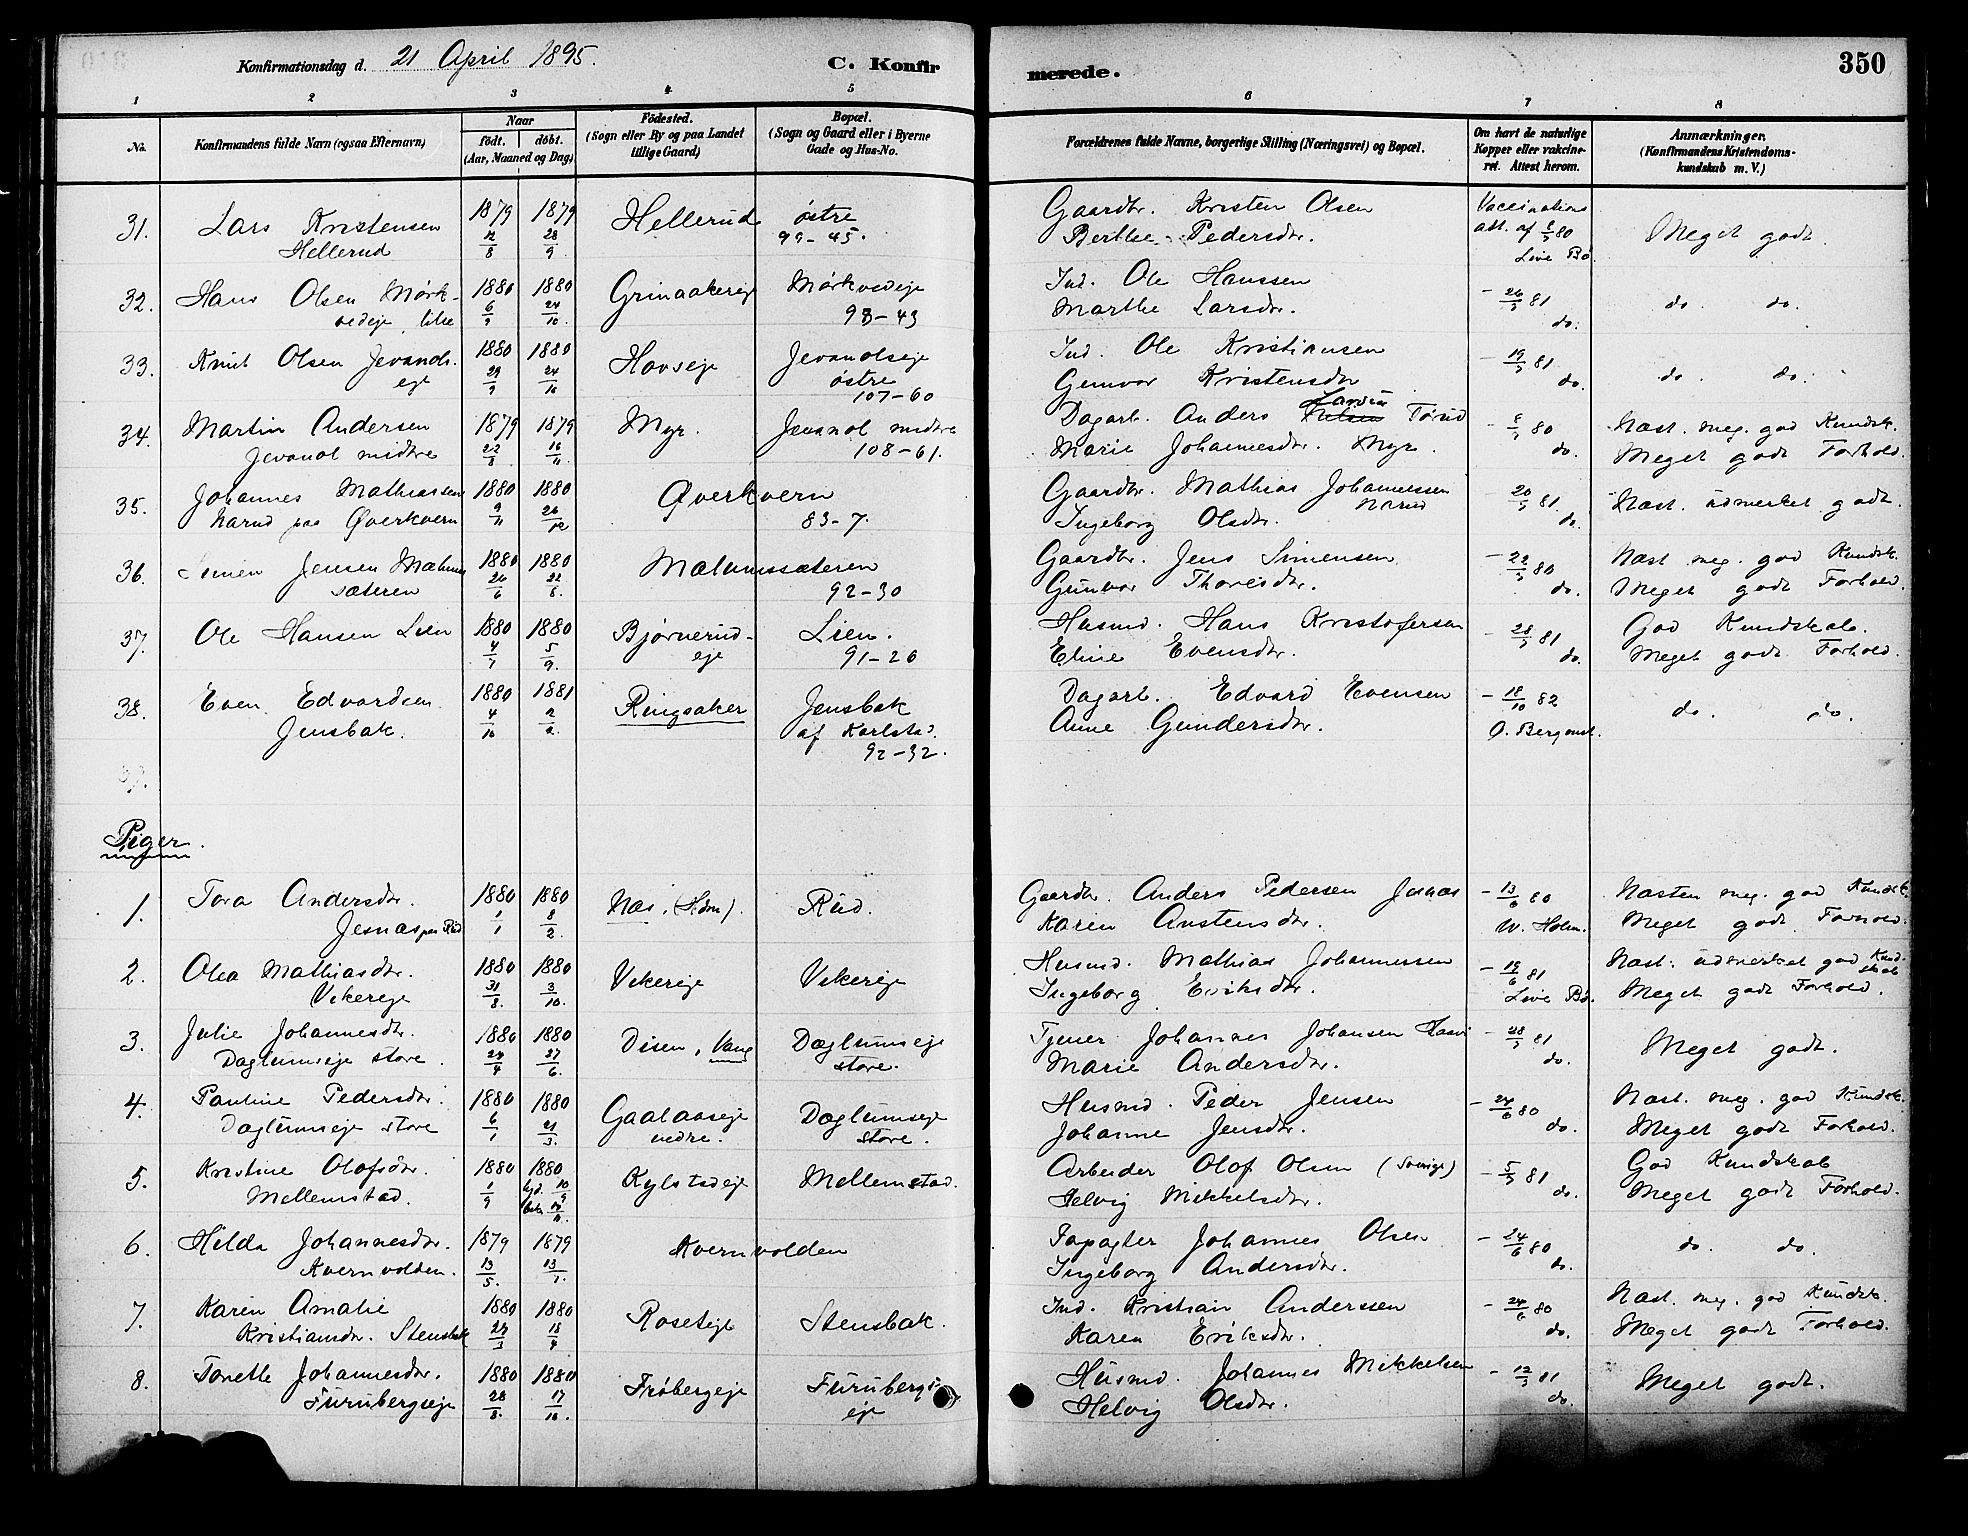 Konfirmationsdag d. 21 April 1895.
C. Konfirmerede.
350
1 2 3 4 5 6 7 8
No.
Konfirmandens fulde Navn (ogsaa Efternavn)
Naar
födt. döbt.
(Aar, Maaned og Dag)
Födested.
(Sogn eller By og paa Landet
tillige Gaard)
Bopæl.
(Sogn og Gaard eller i Byerne
Gade og Hus-No.
Forældrenes fulde Navne, borgerlige Stilling (Næringsvei) og Bopæl.
Om havt de naturlige
Kopper eller vakcine-
ret. Attest herom.
Anmærkninger.
(Konfirmandens Kristendoms-
kundskab m. V.)
31. Lars Kristensen 1879 1879 Hellerud østre Gaardbr. Kristen Olsen Vaccinations
Hellerud 12/8 28/9 99-45. Berthe Pedersdr. att. af 8/7 80 Meget godt.
Live Bø.
32. Hans Olsen Mørk- 1880 1880 Grinaakereje Mørkvedeje Ind. Ole Hanssen
vedeje, lille 6/9 24/10. 93-43 Marthe Larsdr. - 26/5 81 do. do. do.
33. Knut Olsen Jevanols- 1880 1880 Hovseje Jevanolseje Ind. Ole Kristiansen - 19/5 81
eje 29/9 24/10 østre Gunvor Kristensdr do. do. do.
107-60
34. Martin Andersen 1879 1879 Myr. Jevanol midtre Dagarb. Anders Larsen Tørud - 8/7 80 Næst. meg. god Kundsk.
Jevanol midtre 22/8 16/11. 108-61. Marie Johannesdr. Myr. do. Meget godt Forhold.
35. Johannes Mathiassen 1880 1880 Øverkvern Gaardbr. Mathias Johannessen Narud - 20/5 81. Næst. udmerket godt.
Narud paa Øverkvern 9/11 26/12 83-7. Ingeborg Olsdr. do.
36. Simen Jensen Mælums 1880 1880 Mælumssæteren Gaardbr. Jens Simensen - 22/5 80 Næst meg. god Kundsk.
sæteren 26/6 22/8. 92-30 Gunvor Thoresdr. do. Meget godt Forhold.
37. Ole Hansen Lien 1880 1880 Bjørnerud- Lien. Husmd. Hans Kristofersen - 28/5 81 God Kundskab.
4/7 5/9. eje 91-26 Eline Evensdr. do. Meget godt Forhold.
38. Even Edvardsen 1880 1881 Ringsaker Jensbak Dagarb. Edvard Evensen - 18/10 82
Jensbak. 4/10 2/2. af Karlstad. Anne Gundersdr. O. Bergmst. do. do.
92-32.
39.
Piger.
1. Tora Andersdr. 1880 1880 Næs. (Hdm). Rud. Gaardbr. Anders Pedersen Jesnæs - 13/6 80 Næsten meg. god Kundsk.
Jesnæs paa Rud 1/1 8/2. Karen Austensdr. W. Holm. Meget godt Forhold.
2. Olea Mathiasdr. 1880 1880 Vikereje Vikereje Husmd. Mathias Johannessen - 19/6 81 Næst. udmerket god Kund-
skab
Vikereje 31/8. 3/10. Ingeborg Eriksdr. Live Bø. Meget godt Forhold.
3. Julie Johannesdr. 1880 1880 Disen, Vang Dæglumseje Tjener Johannes Johansen - 28/5 81 Meget godt.
Daglumseje store. 24/4 27/6. store. Marie Andersdr. do.
4. Pauline Pedersdr. 1880 1880 Gaalaaseje Dæglumseje Husmd. Peder Jensen - 24/6 80 Næst. meg. god Kundsk.
Daglumseje store 6/1 21/3. nedre. store. Johanne Jensdr. do. Meget godt Forhold.
5. Kristine Olofsdr. 1880 1880 Kylstadeje Mellemstad. Arbeider Olof Olsen (Sverige) - 5/5 81 God Kundskab
Mellemstad. 1/9 hjd. 10/9 Helvig Mikkelsdr. do. Meget godt Forhold.
6. Hilda Johannesdr. 1879 1879 Kvernvolden Forpagter Johannes Olsen - 24/6 80 do. do.
Kvernvolden. 13/5. 13/7. Ingeborg Andersdr. do.
7. Karen Amalie 1880 1880 Rosteje Stensbak. Ind. Kristian Anderssen - 24/6 80 Næst. meg. god Kundsk.
Kristiansdr. Stensbak 27/3 18/4 Karen Eriksdr. do. Meget godt Forhold.
8. Torette Johannesdr. 1880 1880 Frøbergeje Furubergs- Husmd. Johannes Mikkelsen - 12/5 81 Meget godt.
Furubergseje 28/8. 17/10. eje Helvig Olsdr. do.